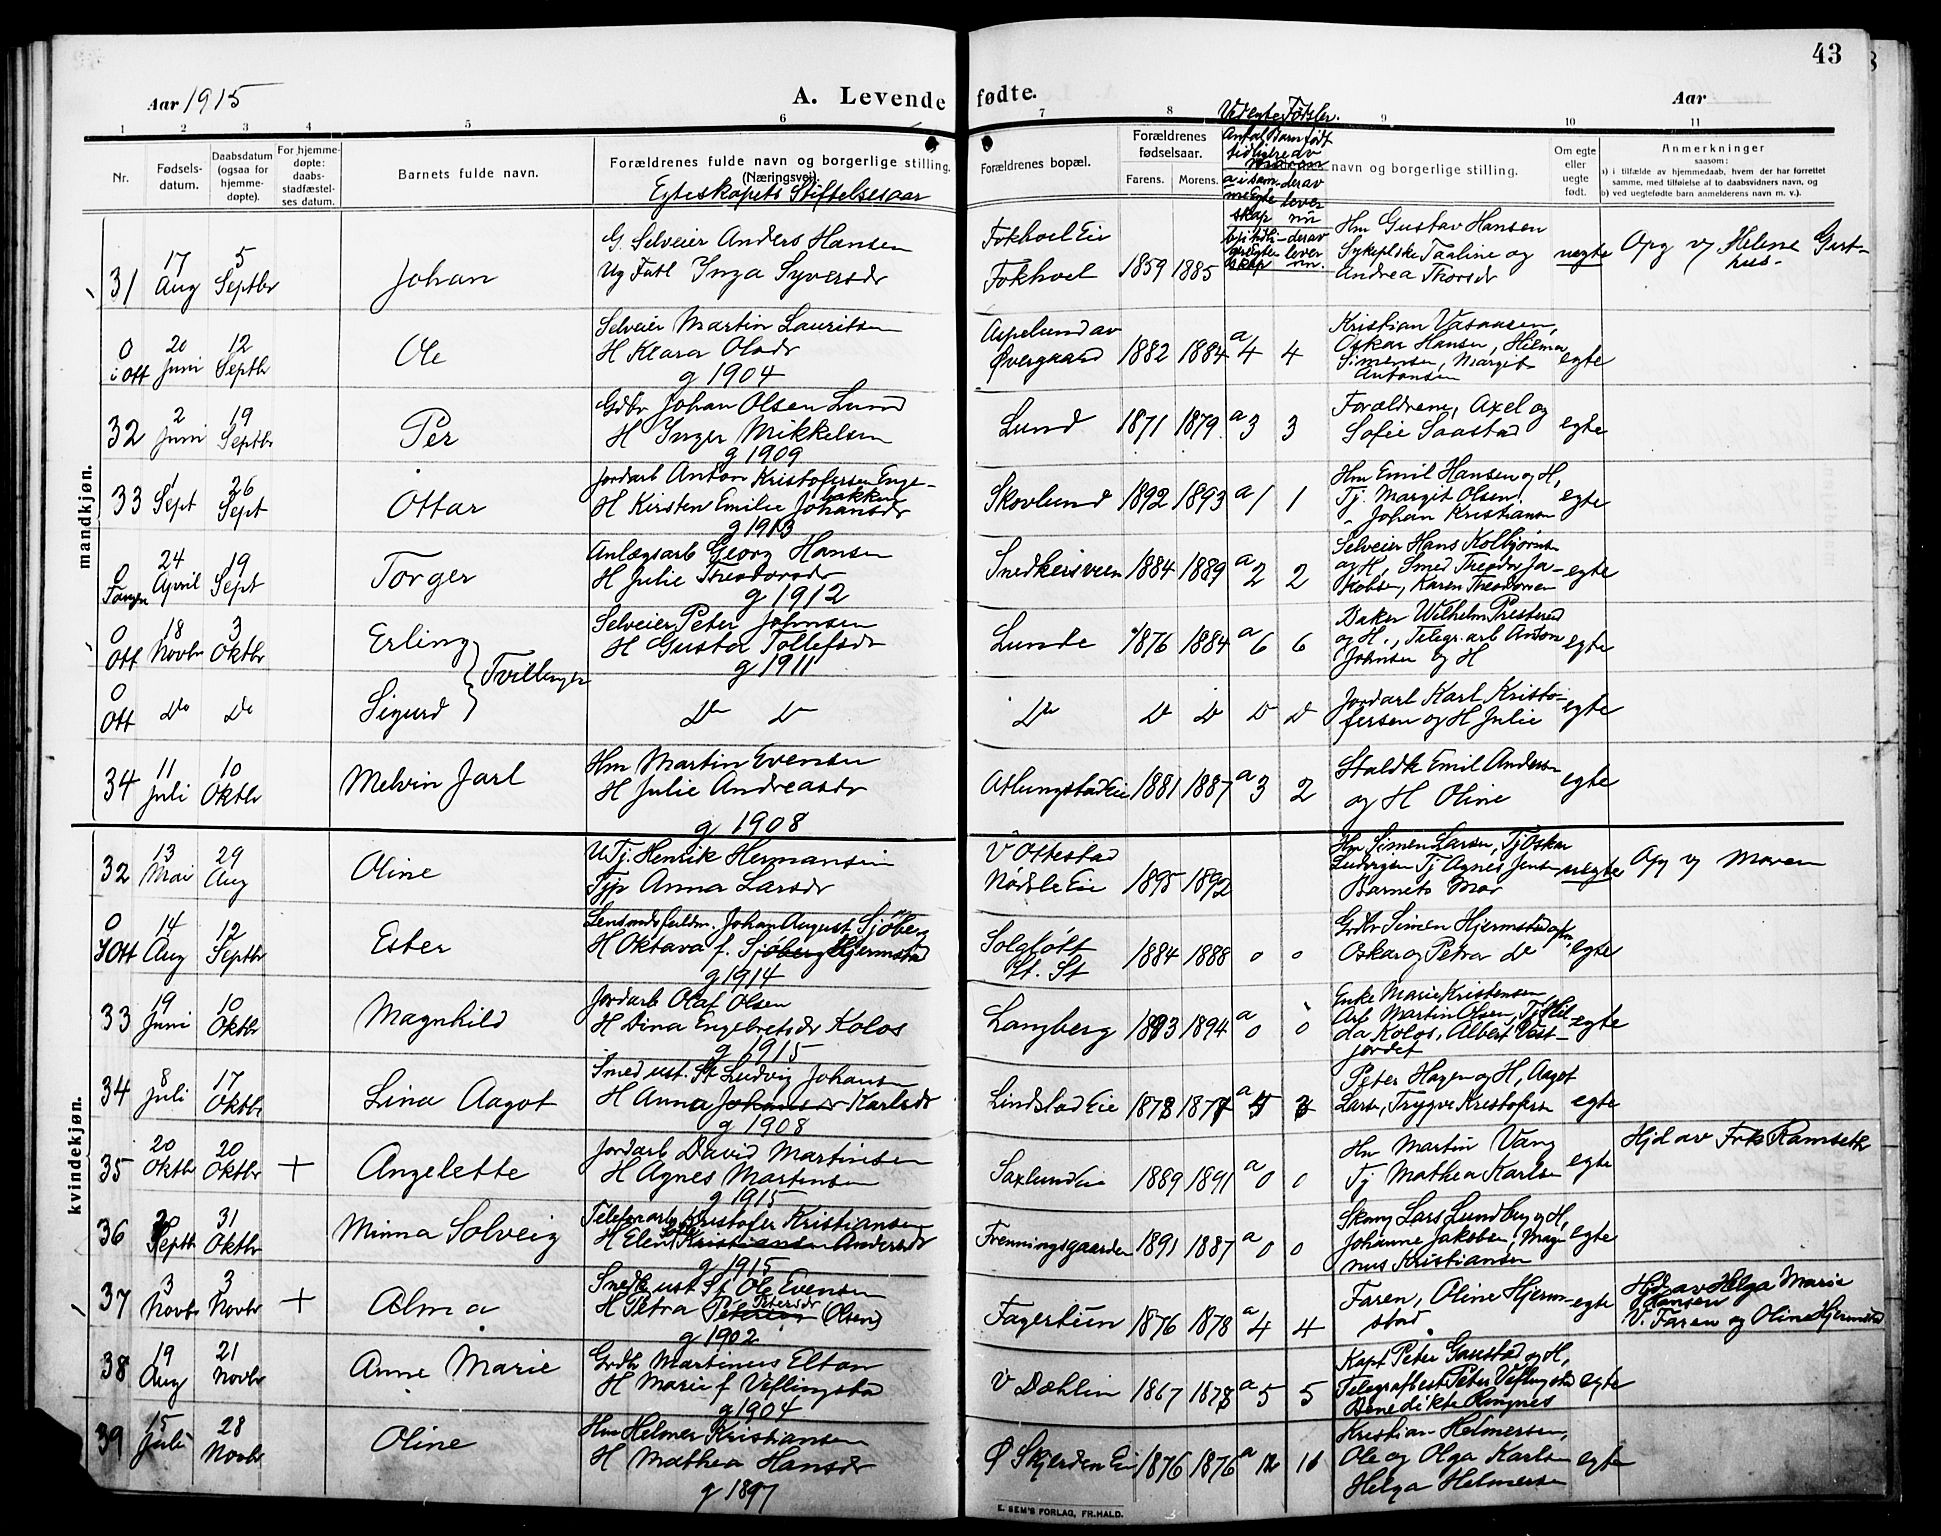 43
Aar 1915
A. Levende fødte.
Aar
1 2 3 4 5 6 7 8 9 10 11
Nr.
Fødsels-
datum.
Daabsdatum
(ogsaa for
hjemme-
døpte).
For hjemme-
døpte:
daabs-
stadfæstel-
ses datum.
Barnets fulde navn.
Forældrenes fulde navn og borgerlige stilling.
(Næringsvei).
Egteskapets Stiftelsesaar
Forældrenes bopæl.
Forældrenes
fødselsaar.
Farens. Morens.
Ved egte Fødsler.
Antal Barn født
tidligere av
navn og borgerlige stilling.
Om egte
eller
uegte
født.
Anmerkninger
saasom:
a) i tilfælde av hjemmedaab, hvem der har forrettet
samme, med tilføielse af to daabsvidners navn, og
b) ved uegtefødte barn anmelderens navn m. v.).
mandkjøn.
31 17 Aug 5 Septbr Johan
G. Selveier Anders Hansen
Ug Fatl Inga Syversdr
Fokhoel Eie
Fokhoel 1859 1885
Hm Gustav Hansen
Sykepleske Taaline og
Andrea Thorsdr
uegte Opg v/ Helene Gust-
hus.
0 i Ott 20 Juni 12 Septbr Ole
Selveier Martin Lauritsen
H Klara Olsdr
g 1904
Aspelund av
Øvergaard 1882 1884 a 4 4
Kristian Vasaasen,
Oskar Hansen, Hilma
Simensen, Margit
Antonsen
egte
32 2 Juni 19 Septbr Per
Gdbr Johan Olsen Lund
H Inger Mikkelsen
g 1909
Lund 1871 1879 a 3 3
Forældrene, Axel og
Sofie Saastad
egte
33 1 Sept 26 Sept Ottar
Jordarb Anton Kristofersen Enge-
bakken
H Kirsten Emilie Johansdr
g 1913
Skovlund 1892 1893 a 1 1
Hm Emil Hansen og H,
Tj. Margit Olsen,
" Johan Kristiansen
egte
0 Tangen 24 April 19 Sept Torger
Anlægsarb Georg Hansen
H Julie Theodorsdr
g 1912
Snedkersveen 1884 1889 a 2 2
Selveier Hans Kolbjørnsen
og H, Smed Theodor Ja-
kobsen, Karen Theodorsen
egte
0 Ott 18 Novbr 3 Oktbr Erling } Tvillinger
Selveier Peter Johnsen
H Gusta Tollefsdr
g 1911
Lunde 1876 1884 a 6 6
Baker Wilhelm Prestrud
og H., Telegr.arb Anton
Johnsen og H
egte
0 Ott Do Do Sigurd
Do Do
Do Do Do Do Do
Jordarb Karl Kristo-
fersen og H Julie
egte
34 11 Juli 10 Oktbr Melvin Jarl
Hm Martin Evensen
H Julie Andreasdr
g 1908
Atlungstad Eie 1881 1887 a 3 2
Staldk Emil Andersen
og H Oline
egte
kvindekjøn.
32 13 Mai 29 Aug Oline
U Tj. Henrik Hermansen
Tjp Anna Larsdr
V Ottestad
Nødsle Eie 1895 1892
Hm Simen Larsen, Tj Oskar
Ludvigsen Tj Agnes Jensen
Barnets Mor
uegte Opg v/ Moren
0 Ott 14 Aug 12 Septbr Ester
Lensmandsfuldm. Johan August Sjøberg
H Oktava f. Sjøberg Hjermstad
g 1914
Solgløtt
St. St 1884 1888 0 0
Grdbr Simen Hjermstad
Oskar og Petra do
egte
33 19 Juni 10 Oktbr Magnhild
Jordarb Olaf Olsen
H Dina Engebretsdr Kolos
g 1915
Langberg 1893 1894 a 0 0
Enke Marie Kristensen
Arb Martin Olsen, Tj Hil-
da Kolos, Albert Vest-
jordet
egte
34 8 Juli 17 Oktbr Lina Aagot
Smed ust. St Ludvig Johansen
H Anna Johansdr Karlsdr
g 1908
Lindstad Eie 1878 1877 a
Peter Hagen og H, Aagot
Larsen, Trygve Kristofersen
egte
35 20 Oktbr 20 Oktbr + Angelette
Jordarb David Martinsen
H Agnes Martensen
g 1915
Saxlund Eie 1889 1891 a 0 0
Hm Martin Vang
Tj Mathea Karlsen
egte Hjd av Frk Ramseth
36 2 Septbr 31 Oktbr Minna Solveig
Telefonarb Kristofer Kristiansen
H Elen Kristiansen Andersdr
g 1915
Frenningsgaarden 1891 1887 a 0 0
Skomg Lars Lundberg og H,
Johanne Jakobsen, Mag-
nus Kristiansen
egte
37 3 Novbr 3 Novbr + Alma
Snedk ust St Ole Evensen
H Petra Petersdr (Olsen)
g 1902
Fagertun 1876 1878 a 4 4
Faren, Oline Hjerm-
stad
egte Hjd av Helga Marie
Hansen
V. Faren og Oline Hjermstad
38 19 Aug 21 Novbr Anne Marie
Grdbr Martinus Elton
H Marie f Veflingstad
g 1904
V Dæhlin 1867 1878 a 5 5
Kapt Peter Gaustad og H,
Telegrafbest Peter Veflingstad
Benedikte Ringnes
egte
39 15 Juli 28 Novbr Oline
Hm Helmer Kristiansen
H Mathea Hansdr
g 1897
Ø Skjerden Eie 1876 1876 a 12
Kristian Helmersen,
Ole og Olga Karlsen
Helga Helmersen
egte
E. SEM'S FORLAG, FR.HALD.